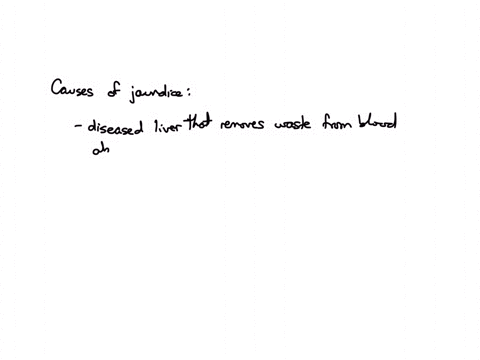 Causes of jaundice:
- diseased liver that removes waste from blood
oh